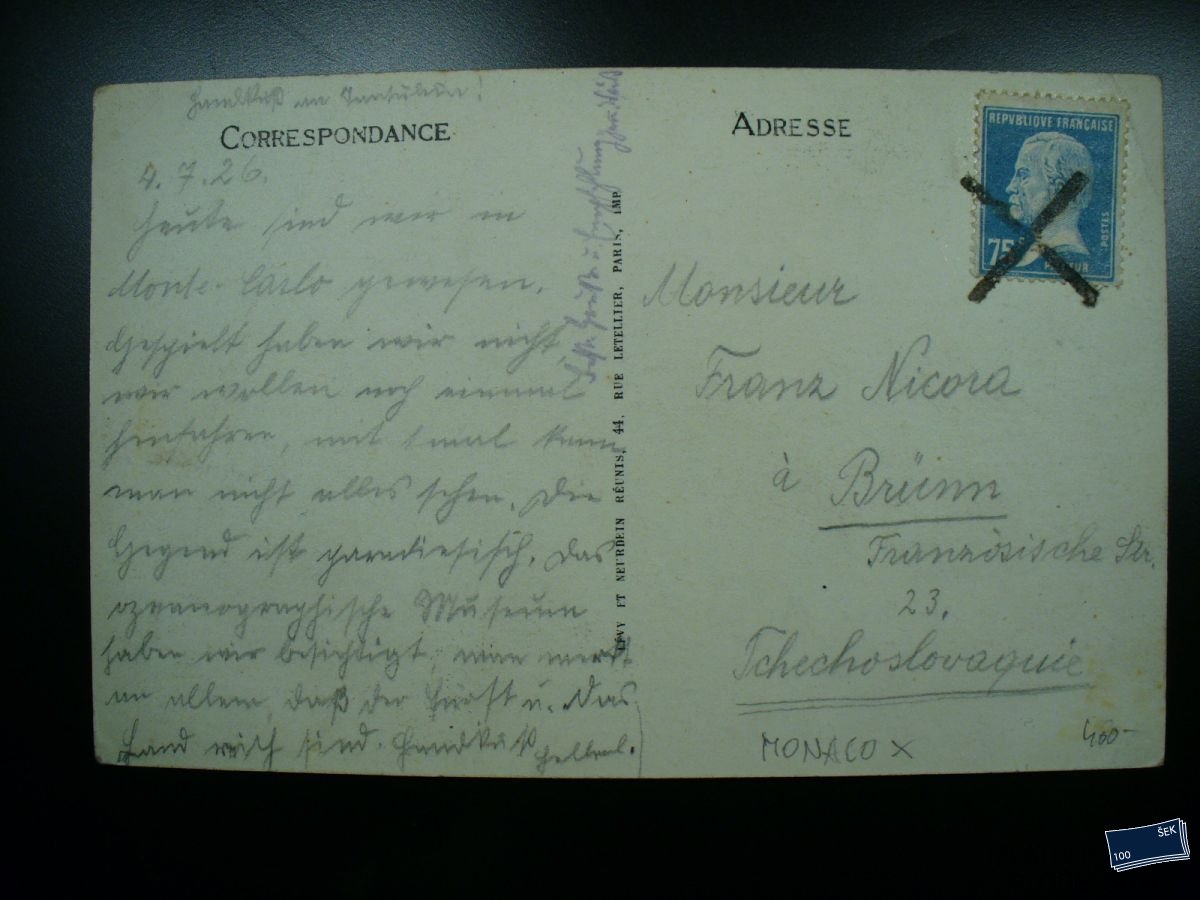 Handkuß an
CORRESPONDANCE
4.7.26.
Heute sind wir in
Monte-Carlo gewesen.
Gespielt haben wir nicht,
wir wollen noch einmal
hinfahren, mit 1 mal kann
man nicht alles sehen. Die
Gegend ist paradiesisch. Das
ozeanographische Museum
haben wir besichtigt, man merkt
an allem, daß der Fürst u. das
Land reich sind. Handkuß
LÉVY ET NEURDEIN RÉUNIS, 44, RUE LETELLIER, PARIS, IMP.
ADRESSE
REPUBLIQUE FRANÇAISE
75
POSTES
Monsieur
Franz Nicora
à Brünn
Französische Str.
23.
Tchechoslovaquie
MONACO X
400-
ŠEK
100